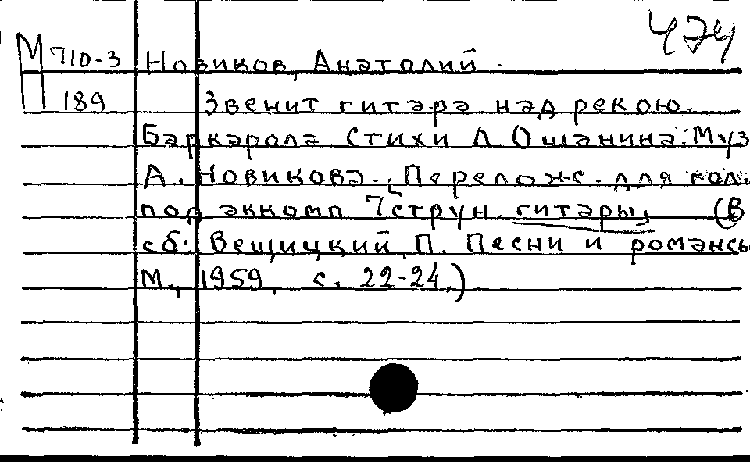 474
М 710-3 Новиков, Анатолий.
П 189 Звенит гитара над рекою.
Баркарола Стихи Л. Ошанина. Муз
А. Новикова. Перелож. для гол.
под аккомп 7 струн. гитары. (В
сб: Вещицкий, П. Песни и романсы
М., 1959, с. 22-24.)